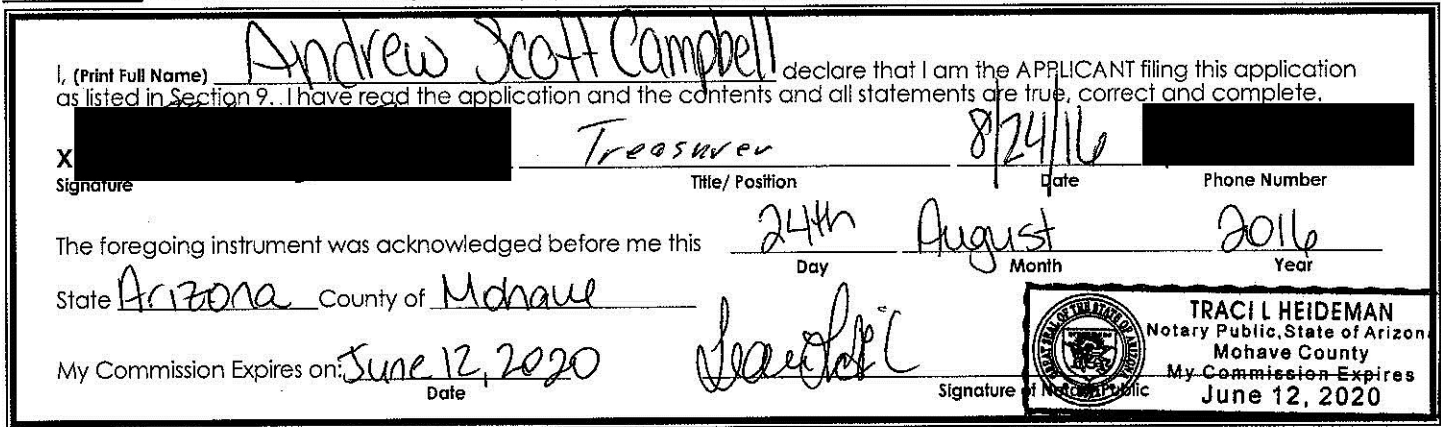 I, (Print Full Name) Andrew Scott Campbell declare that I am the APPLICANT filing this application
as listed in Section 9. I have read the application and the contents and all statements are true, correct and complete.
X Treasurer 8/24/16
Signature Title/ Position Date Phone Number
The foregoing instrument was acknowledged before me this 24th August 2016
Day Month Year
State Arizona County of Mohave
My Commission Expires on: June 12, 2020
Date Signature of Notary Public
GREAT SEAL OF THE STATE OF ARIZONA
TRACI L HEIDEMAN
Notary Public, State of Arizona
Mohave County
My Commission Expires
June 12, 2020